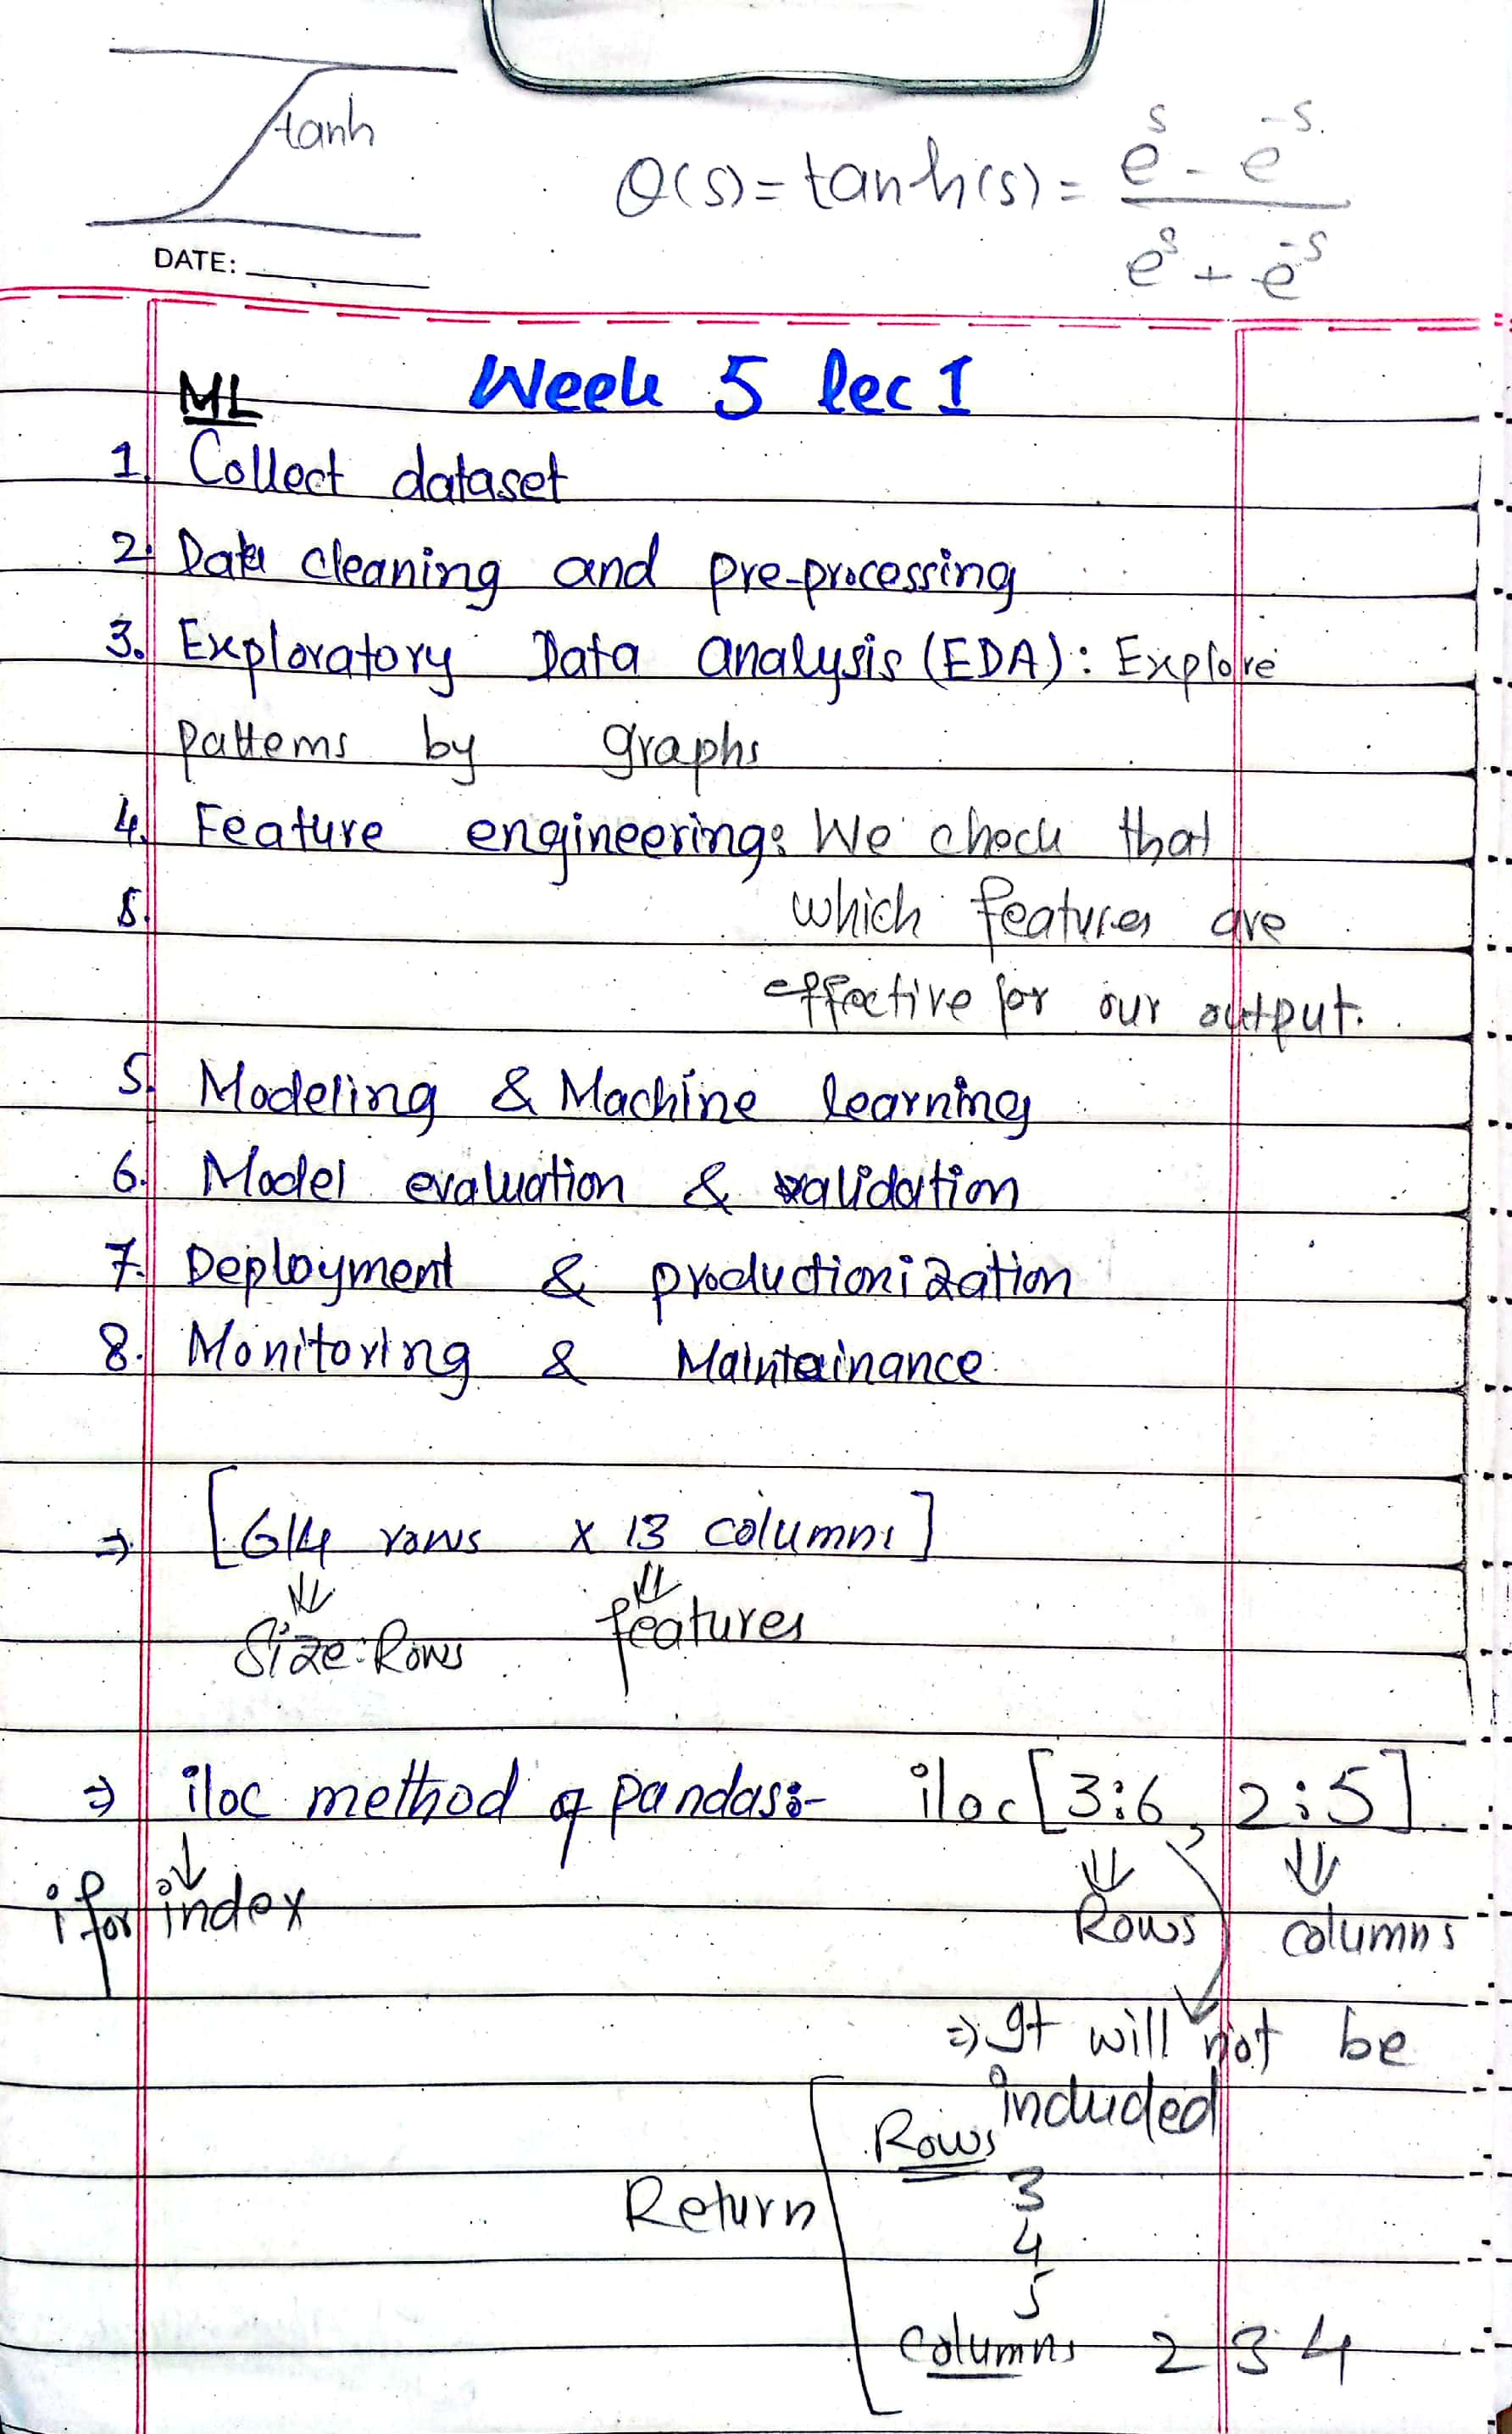 tanh
θ(s) = tanh(s) = e^s - e^-s / e^s + e^-s
DATE:
ML Week 5 lec 1
1. Collect dataset
2. Data cleaning and pre-processing
3. Exploratory Data analysis (EDA): Explore
patterns by graphs
4. Feature engineering: We check that
5. which features are
effective for our output.
5. Modeling & Machine learning
6. Model evaluation & validation
7. Deployment & productionization
8. Monitoring & Maintainance
⇒ [614 rows x 13 columns]
⇓ ⇓
Size: Rows features
⇒ iloc method of pandas:- iloc[3:6, 2:5]
↓ ⇓ ⇓
i for index Rows columns
⇒ It will not be
included
Rows
3
Return
4
5
Columns 2 3 4